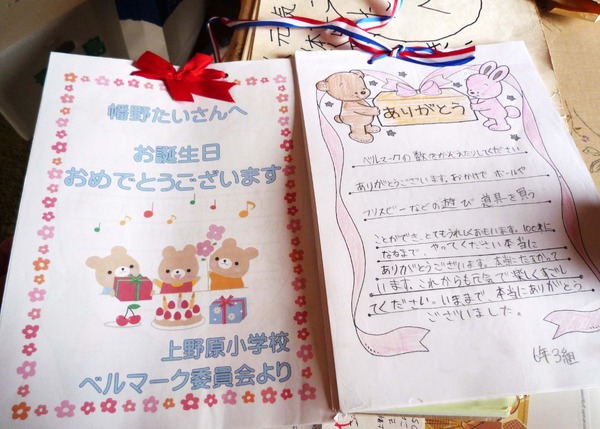 幡野たいさんへ
お誕生日
おめでとうございます
上野原小学校
ベルマーク委員会より
ありがとう
ベルマークの数をかんたんにしてくださり
ありがとうございます。おかげで ボールや
フリスビーなどの遊び 道具を買う
ことができ、とてもうれしくおもいます。100才に
なるまで、やってください本当に
ありがとうございます。本当にたすかって
います、これからも元気で楽しくすごし
てください。いままで、本当にありがとう
ございました。
6年3組
元気